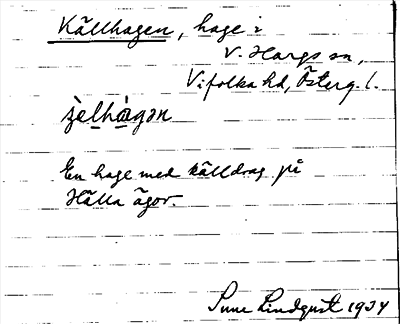 Källhagen, hage i
V. Hargs sn,
Vifolka hd, Österg. l.
ʂèlhàgən
En hage med källdrag på
Hälla ägor.
Sune Lindqvist 1934